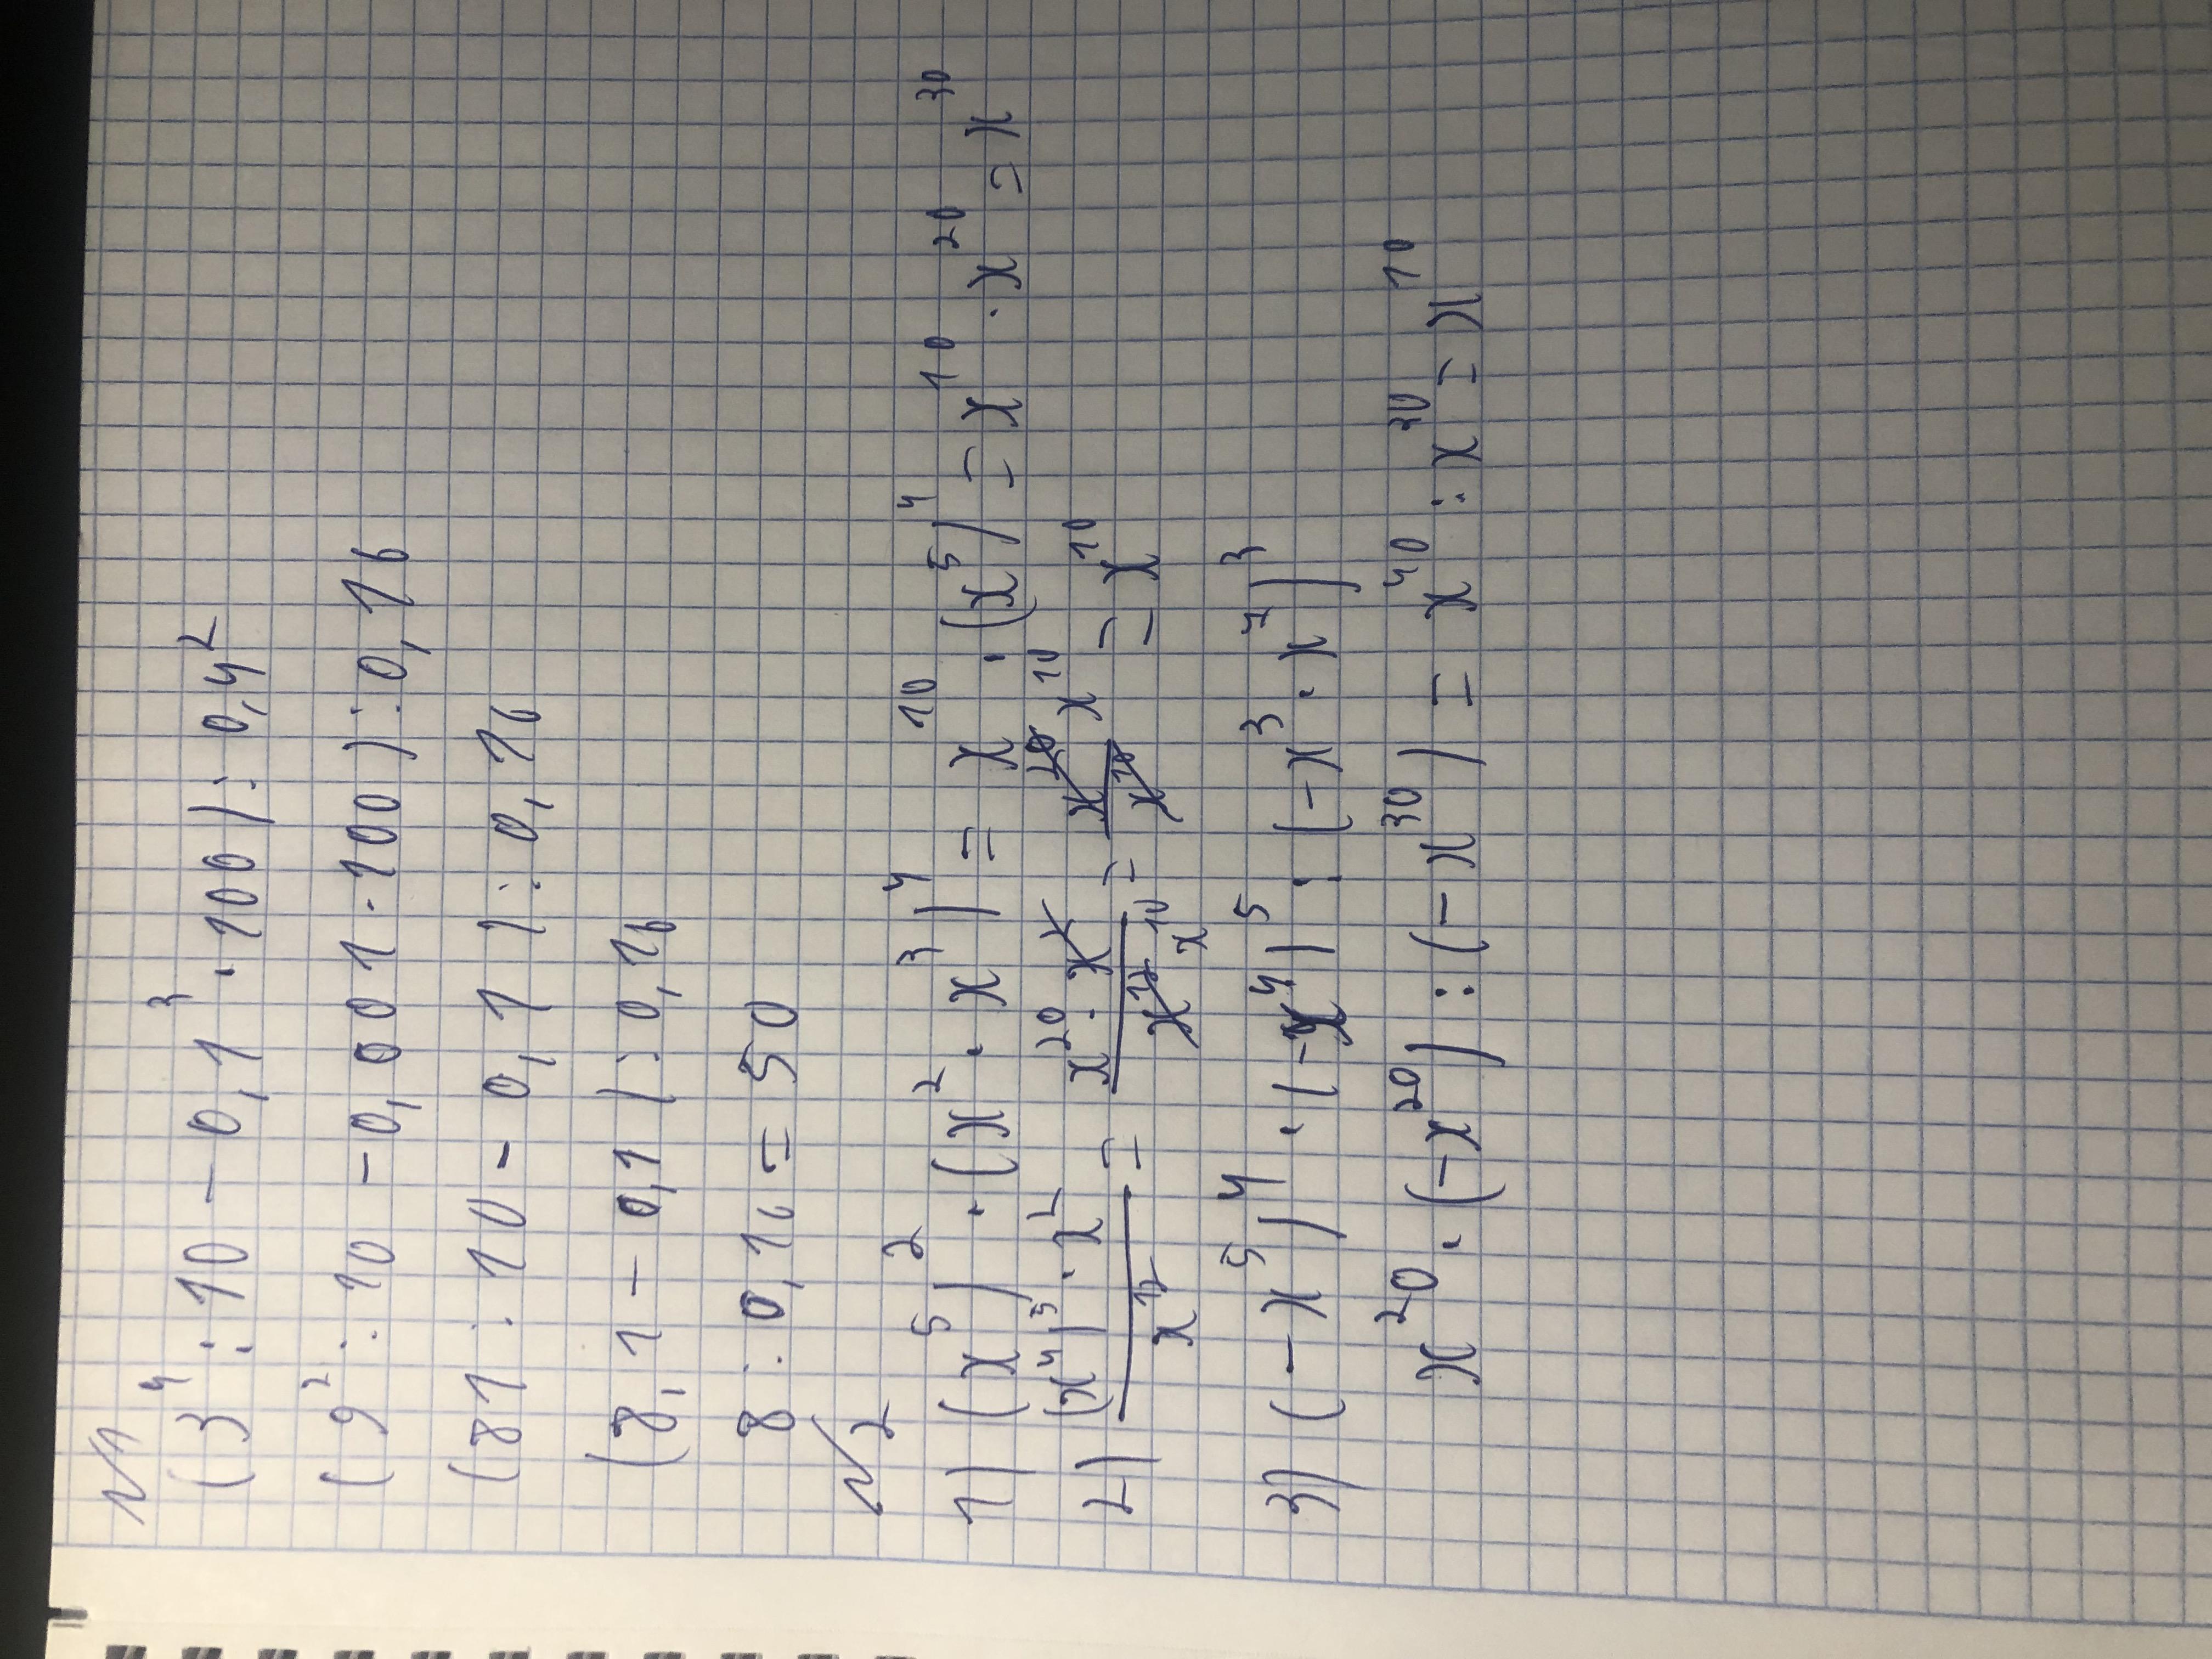 №1
(3⁴ : 10 - 0,1³ · 100) : 0,4²
(9² : 10 - 0,001 · 100) : 0,16
(81 : 10 - 0,1) : 0,16
(8,1 - 0,1) : 0,16
8 : 0,16 = 50
№2
1) (x⁵)² · (x² · x³)⁴ = x¹⁰ · (x⁵)⁴ = x¹⁰ · x²⁰ = x³⁰
2) (x⁴)⁵ · x² / x¹² = x²⁰ · x² / x¹² x¹⁰ = x²⁰ / x¹⁰ x¹⁰ = x¹⁰
3) (-x⁵)⁴ · (-x⁴)⁵ : (-x³ · x⁷)³
x²⁰ · (-x²⁰) : (-x³⁰) = x⁴⁰ : x³⁰ = x¹⁰